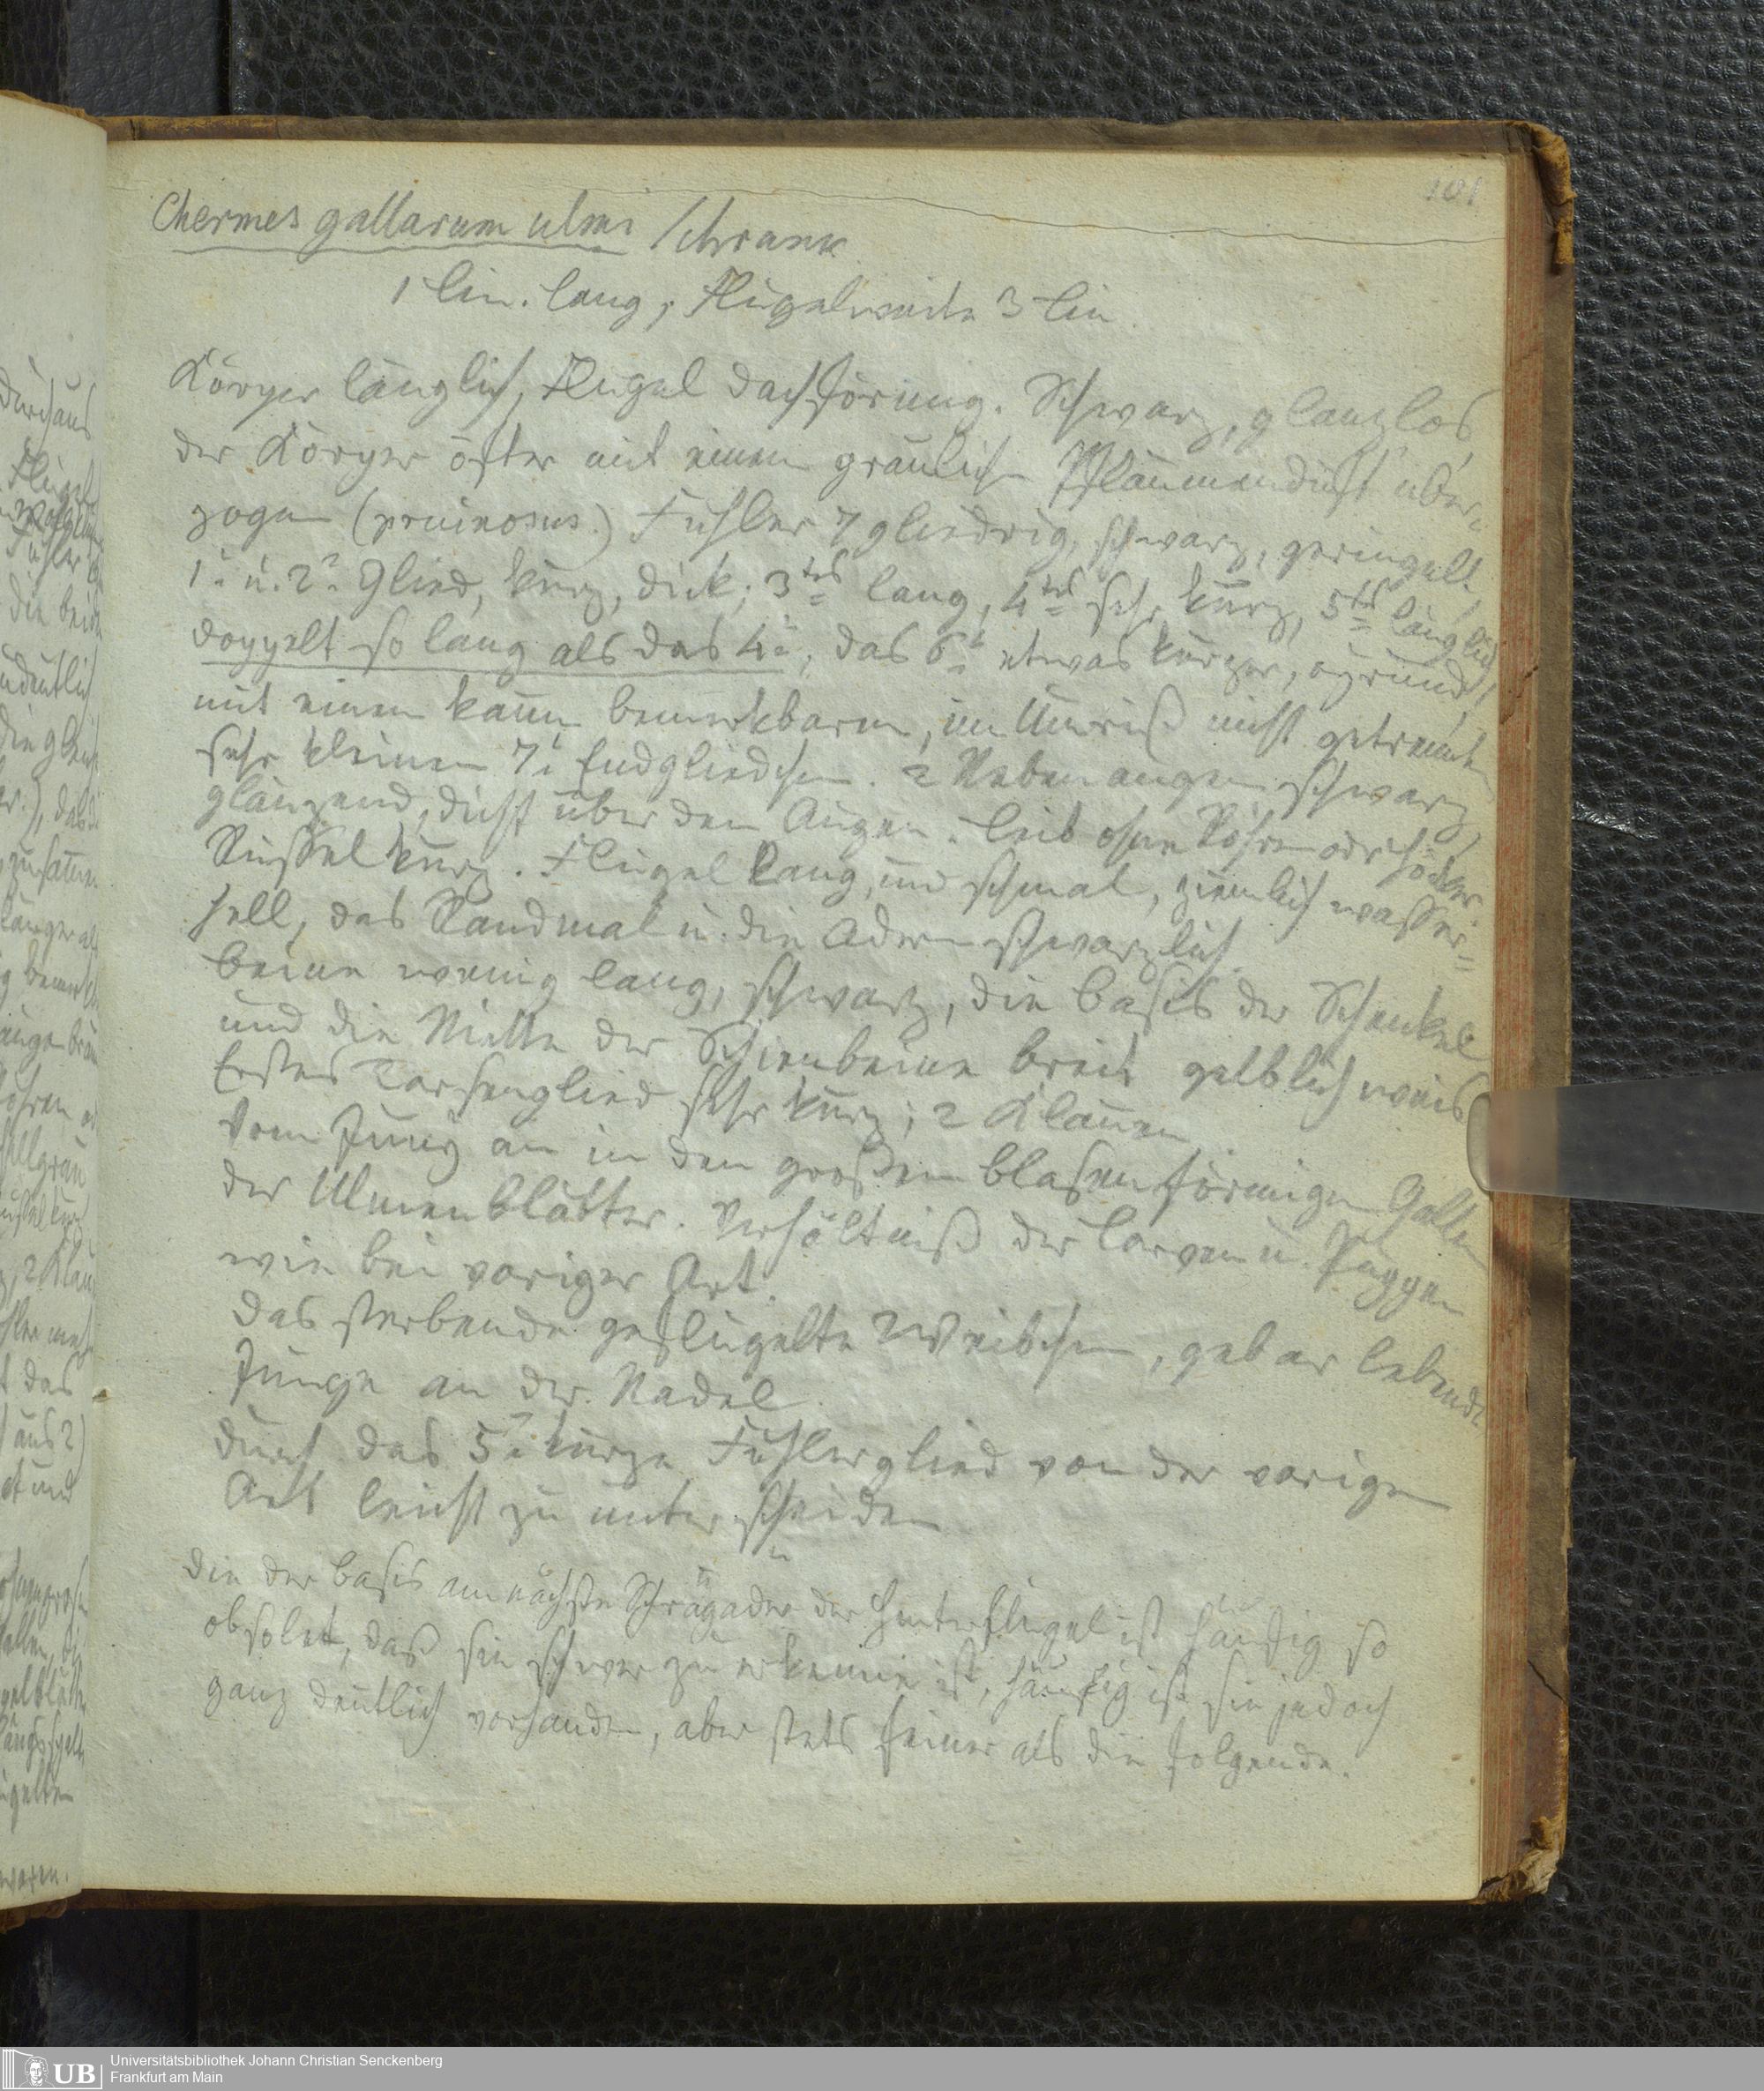 101
Chermes gallarum ulmi Schrank
1 Lin. lang, Flügelweite 3 Lin.
Körper länglich, Flügel dachförmig. Schwarz, glanzlos,
der Körper öfter mit einem graulichen Pflaumenduft über-
zogen (pruinosus.) Fühler 7 gliedrig, schwarz, geringelt,
1. u. 2. Glied, kurz, dick; 3tes lang, 4tes sehr kurz, 5tes länglich
doppelt so lang als das 4., das 6. etwas kürzer, eyrund,
mit einem kaum bemerkbaren, im Umriß nicht getrennten
sehr kleinen 7. Endgliedchen. 2 Nebenaugen schwarz,
glänzend, dicht über den Augen. Leib ohne Röhren oder Höcker.
Rüssel kurz. Flügel lang, und schmal, ziemlich wasser-
hell, das Randmal u. die Adern schwärzlich.
Beine wenig lang, schwarz, die Basis der Schenkel
und die Mitte der Schienbeine breit gelblich weis
Erstes Tarsenglied sehr kurz; 2 Klauen.
Vom Juny an in den großen blasenförmigen Gallen
der Ulmenblätter. Verhältniß der Larven u. Puppen
wie bei voriger Art.
Das sterbende geflügelte Weibchen, gebar lebende
Junge an der Nadel.
Durch das 5. kurze Fühlerglied von der vorigen
Art leicht zu unterscheiden
Die der Basis am nächste Schrägader der Hinterflügel ist häufig so
obsolet, daß sie schwer zu erkennen ist, häufig ist sie jedoch
ganz deutlich vorhanden, aber stets feiner als die folgende.
UB
Universitätsbibliothek Johann Christian Senckenberg
Frankfurt am Main